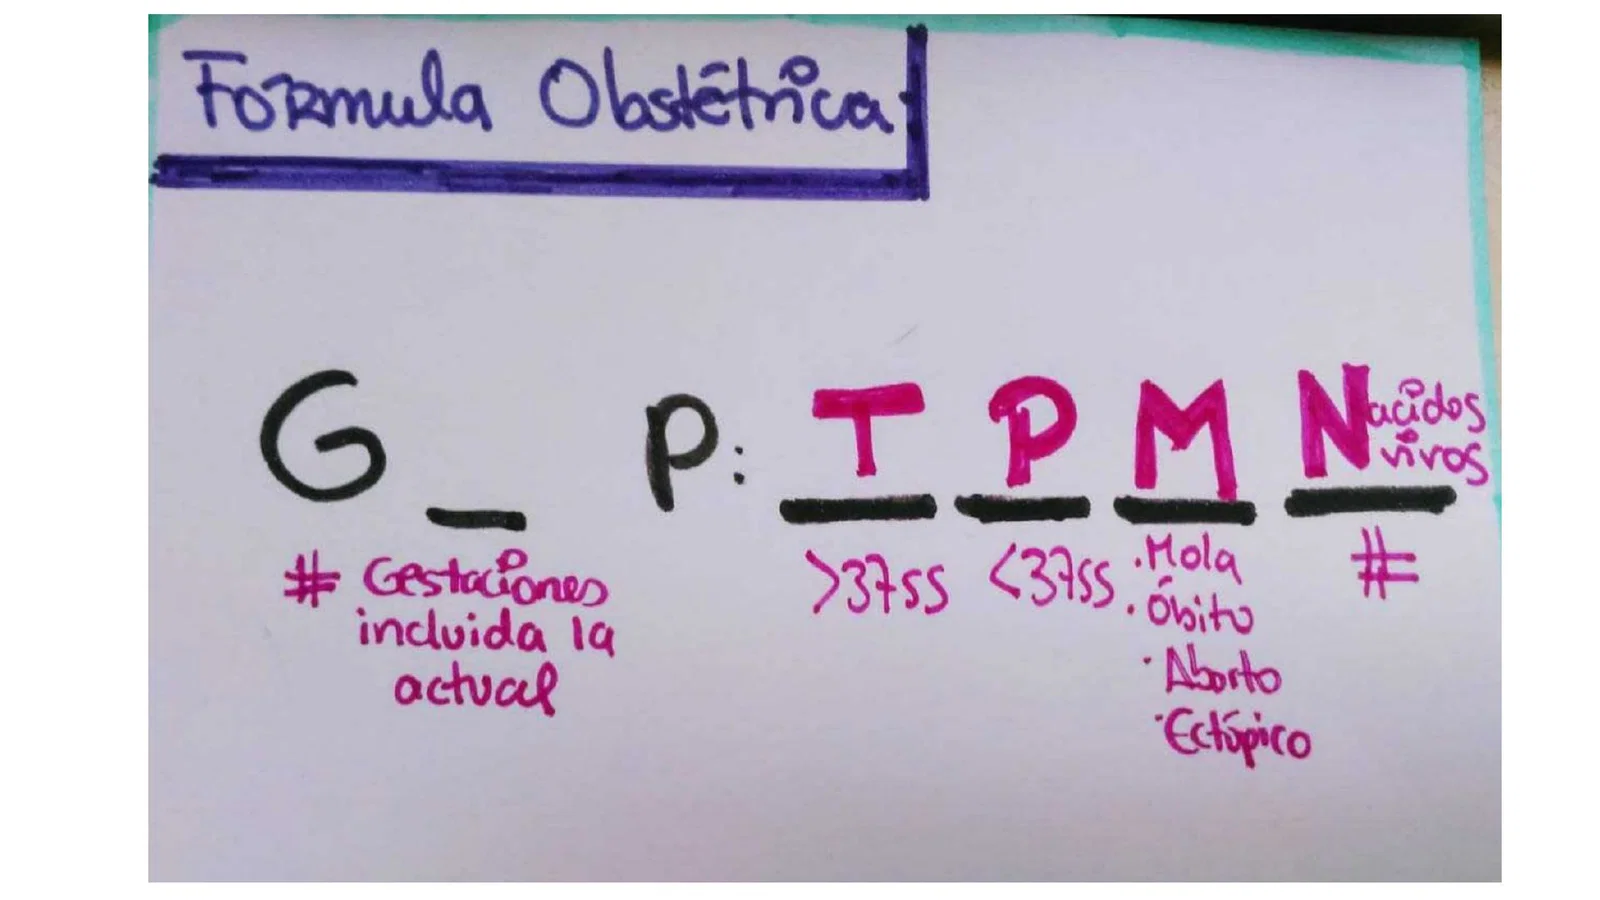 Fórmula Obstétrica
G_ P: T P M Nacidos vivos
# Gestaciones incluida la actual
>37ss
<37ss
. Mola
. Óbito
· Aborto
· Ectópico
#